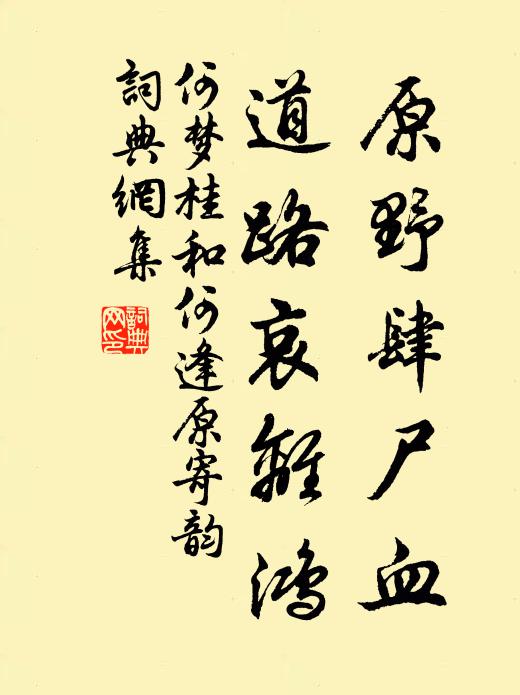 原野肆尸血
道路哀離鴻
何梦桂和何逢原寄韵
詞典網集
詞典网印